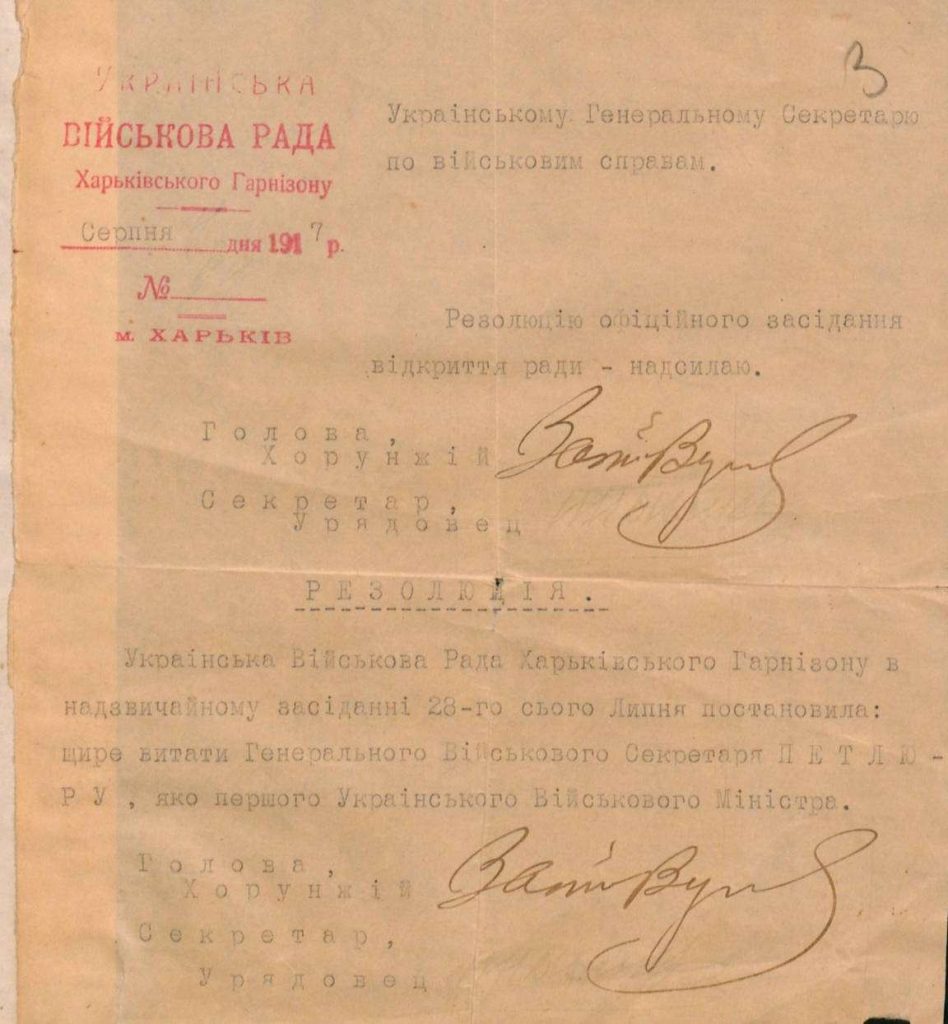 3
УКРАЇНСЬКА
ВІЙСЬКОВА РАДА
Харьківського Гарнізону
Серпня дня 1917 р.
№
м. ХАРЬКІВ
Українському Генеральному Секретарю
по військовим справам.
Резолюцію офіційного засідання
відкриття ради - надсилаю.
Голова,
Хорунжій
Секретар,
Урядовец
РЕЗОЛЮЦІЯ.
Украінська Військова Рада Харьківського Гарнізону в
надзвичайному засіданні 28-го сього Липня постановила:
щире витати Генерального Військового Секретаря ПЕТЛЮ-
РУ, яко першого Украінського Військового Міністра.
Голова,
Хорунжій
Секретар,
Урядовец